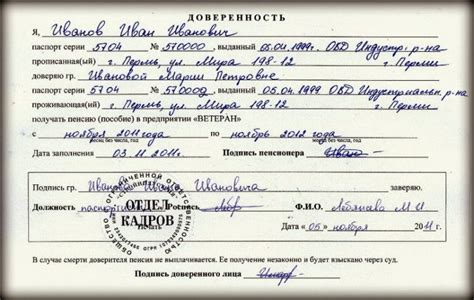 ДОВЕРЕННОСТЬ
Я, Иванов Иван Иванович
паспорт серии 5704 № 570000, выданный 05.04.1999 ОВД Индустр. р-на
прописанный(ая) г. Пермь, ул. Мира 198-12 г. Перми
доверяю гр. Ивановой Марии Петровне
паспорт серии 5704 № 570009, выданный 05.04.1999 ОВД Индустриальн. р-на
проживающий(ая) г. Пермь, ул. Мира 198-12 г. Перми
получать пенсию (пособие) в предприятии «ВЕТЕРАН»
с ноября 2011 года по ноябрь 2012 года
месяц без числа, год месяц без числа, год
Дата заполнения 03.11.2011г. Подпись пенсионера
Подпись гр. Иванова Ивана Ивановича заверяю.
Должность Роспись Ф.И.О.
ОТДЕЛ КАДРОВ
Печать «05» ноября 2011 г.
В случае смерти доверителя пенсия не выплачивается. Ее получение незаконно и будет взыскано через суд.
Подпись доверенного лица